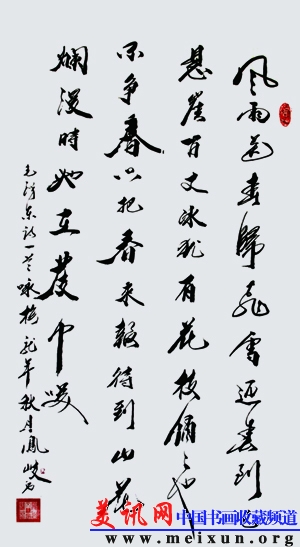 風雨送春歸飛雪迎春到已是
懸崖百丈冰犹有花枝俏々也
不争春只把春来報待到山花
爛漫時她在叢中笑
毛泽东词一首咏梅龙年秋月鳳岐书
美讯网 中国书画收藏频道
www.meixun.org